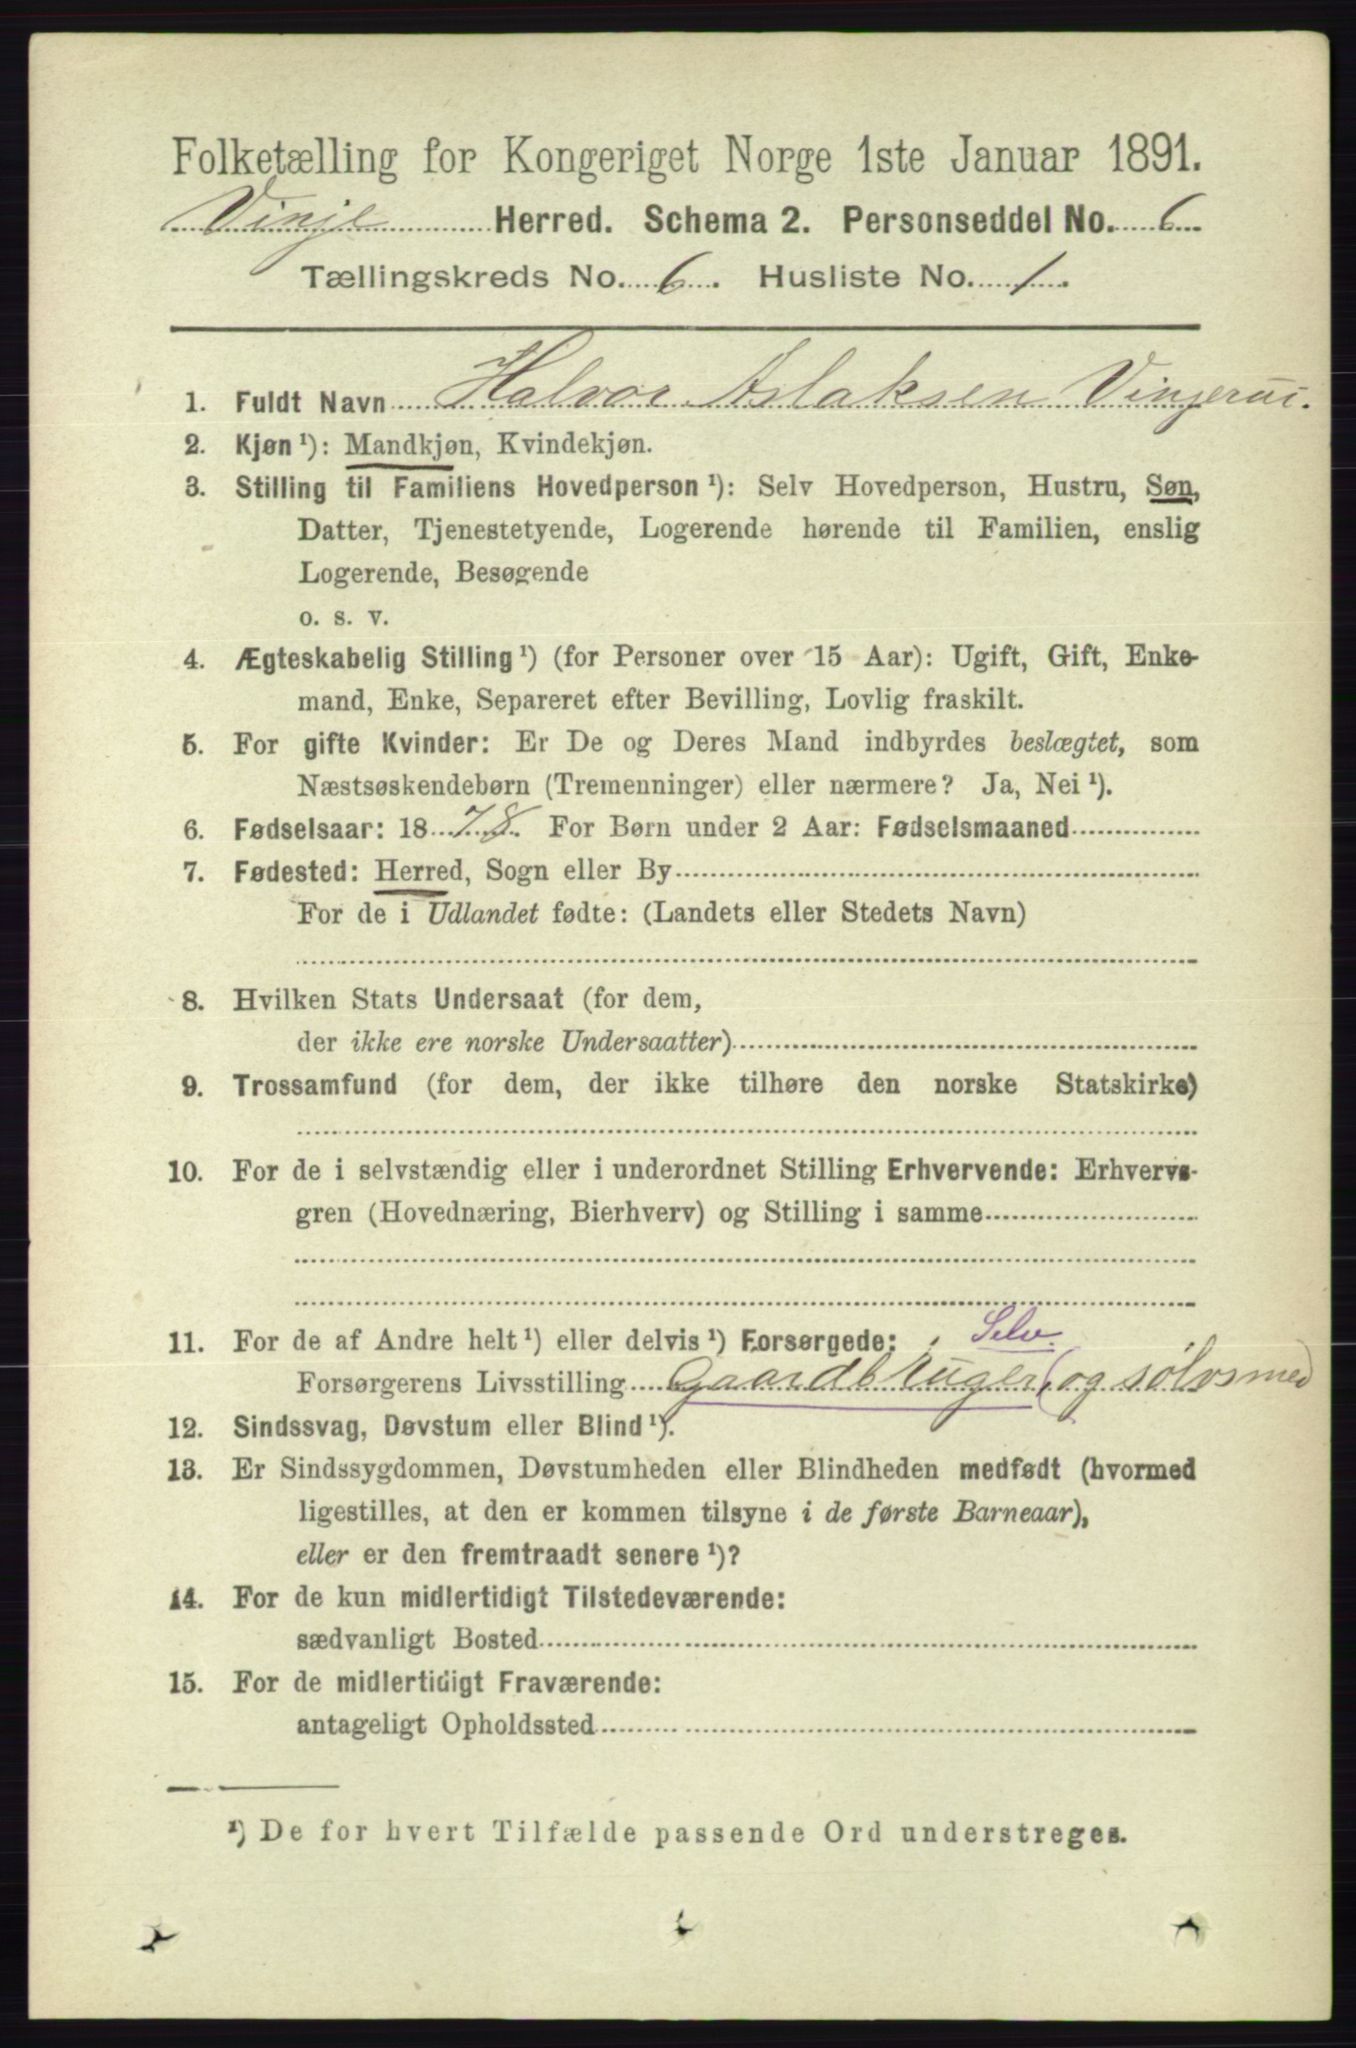 Folketælling for Kongeriget Norge 1ste Januar 1891.
Vinje Herred. Schema 2. Personseddel No. 6
Tællingskreds No. 6. Husliste No. 1.
1. Fuldt Navn Halvor Aslaksen Vinjerui.
2. Kjøn ¹): Mandkjøn, Kvindekjøn.
3. Stilling til Familiens Hovedperson ¹): Selv Hovedperson, Hustru, Søn,
Datter, Tjenestetyende, Logerende hørende til Familien, enslig
Logerende, Besøgende
o. s. v.
4. Ægteskabelig Stilling ¹) (for Personer over 15 Aar): Ugift, Gift, Enke-
mand, Enke, Separeret efter Bevilling, Lovlig fraskilt.
5. For gifte Kvinder: Er De og Deres Mand indbyrdes beslægtet, som
Næstsøskendebørn (Tremenninger) eller nærmere? Ja, Nei ¹).
6. Fødselsaar: 18 78. For Børn under 2 Aar: Fødselsmaaned
7. Fødested: Herred, Sogn eller By
For de i Udlandet fødte: (Landets eller Stedets Navn)
8. Hvilken Stats Undersaat (for dem,
der ikke ere norske Undersaatter)
9. Trossamfund (for dem, der ikke tilhøre den norske Statskirke)
10. For de i selvstændig eller i underordnet Stilling Erhvervende: Erhvervs-
gren (Hovednæring, Bierhverv) og Stilling i samme
11. For de af Andre helt ¹) eller delvis ¹) Forsørgede: Selv
Forsørgerens Livsstilling Gaardbruger (og sølvsmed
12. Sindssvag, Døvstum eller Blind ¹).
13. Er Sindssygdommen, Døvstumheden eller Blindheden medfødt (hvormed
ligestilles, at den er kommen tilsyne i de første Barneaar),
eller er den fremtraadt senere ¹)?
14. For de kun midlertidigt Tilstedeværende:
sædvanligt Bosted
15. For de midlertidigt Fraværende:
antageligt Opholdssted
¹) De for hvert Tilfælde passende Ord understreges.